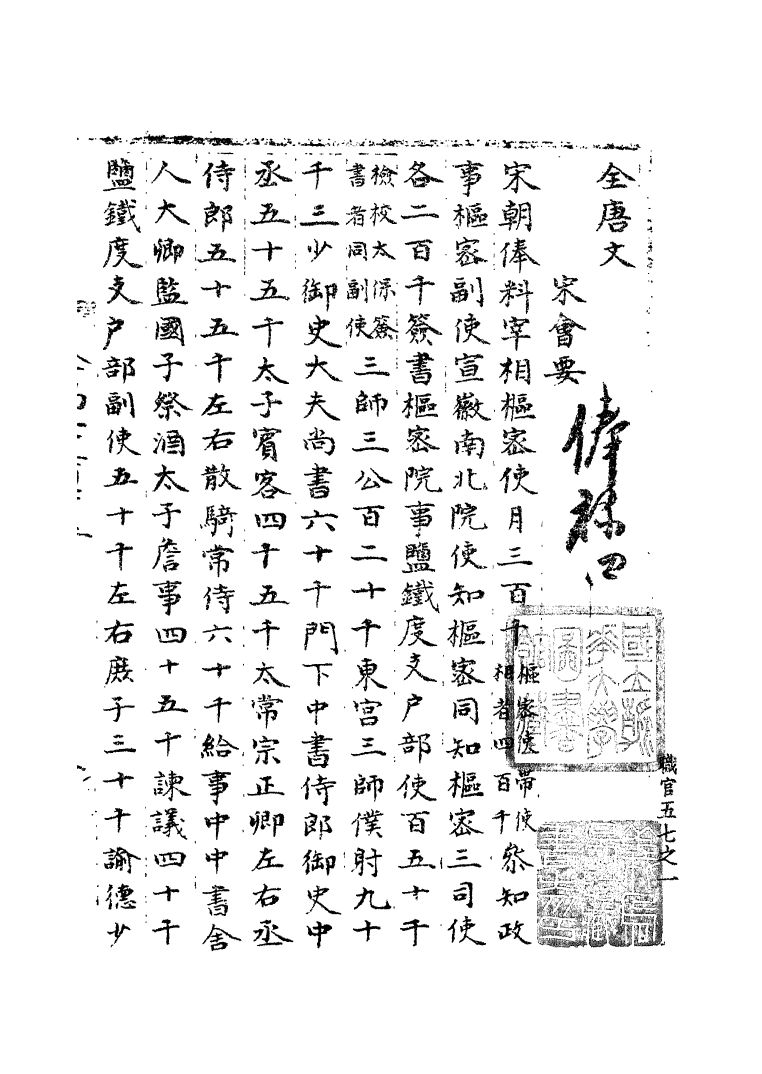 職官五七之一
全唐文
宋會要
俸祿四
宋朝俸料宰相樞密使月三百千樞密使帶使相者四百千叅知政
事樞密副使宣徽南北院使知樞密同知樞密三司使
各二百千簽書樞密院事鹽鐵度支户部使百五十千
檢校太保簽書者同副使三師三公百二十千東宮三師僕射九十
千三少御史大夫尚書六十千門下中書侍郎御史中
丞五十五千太子賓客四十五千太常宗正卿左右丞
侍郎五十五千左右散騎常侍六十千給事中中書舍
人大卿監國子祭酒太子詹事四十五千諫議四十千
鹽鐵度支户部副使五十千左右庶子三十千諭德少